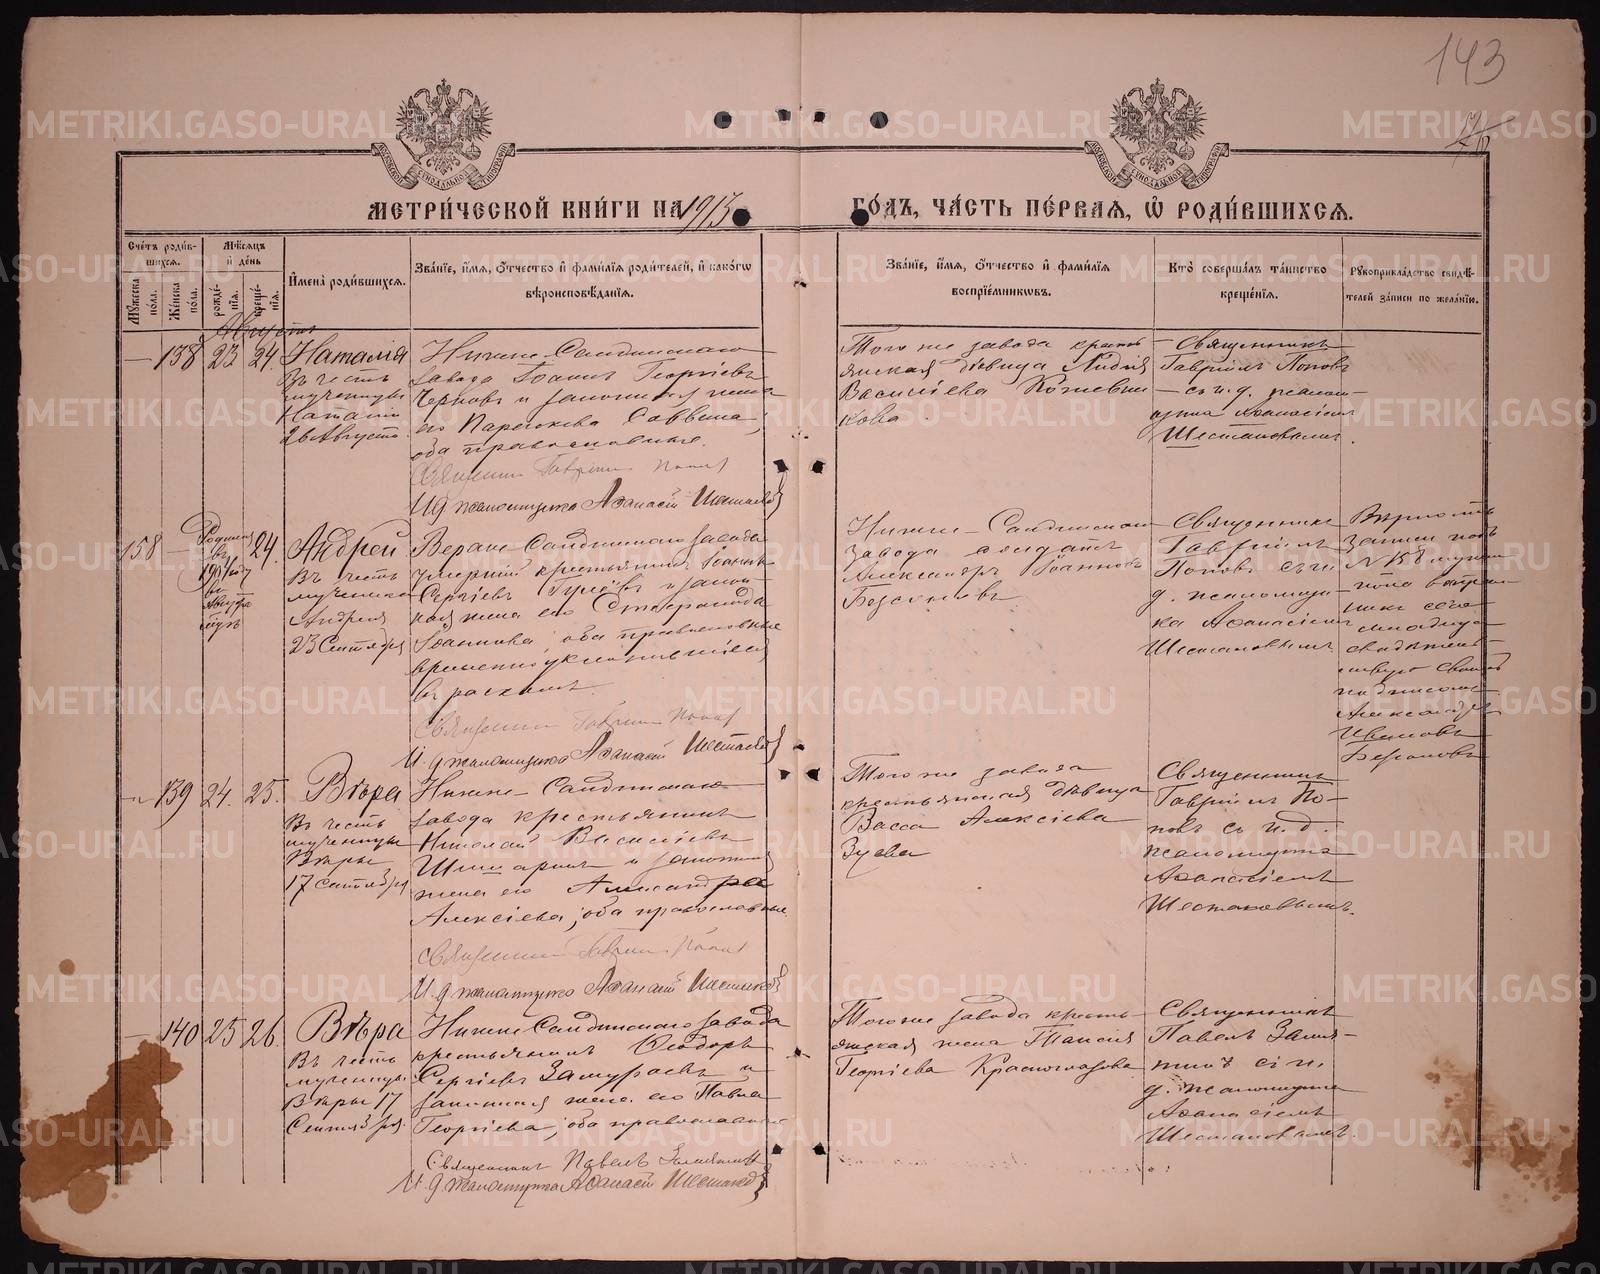 143
МЕТРИ́ЧЕСКОЙ КНИ́ГИ НА 1913 ГО́ДЪ, ЧА́СТЬ ПЕ́РВАЯ, Ѡ РОДИ́ВШИХСЯ.
Сче́тъ роди́вшихся.
Мѣ́сяцъ и де́нь
Му́жеска по́ла.
Же́нска по́ла.
рожде́нія.
креще́нія.
Имена̀ роди́вшихся.
Зва́ніе, и́мя, о́тчество и фами́лія роди́телей, и како́гѡ
вѣроисповѣ́данія.
Зва́ніе, и́мя, о́тчество и фами́лія
воспріе́мниковъ.
Кто̀ соверша́лъ та́инство
креще́нія.
Рукоприкла́дство свидѣ́-
телей за́писи по жела́нію.
Августъ
— 138 23 24. Наталія
Въ честь
мученицы
Наталіи
26 Августа.
Нижне-Салдинскаго
завода Іоаннъ Георгіевъ
Черновъ и законная жена
его Параскева Саввина,
оба православные.
Священникъ Гавріилъ Поповъ
И. д. псаломщика Аѳанасій Шестаковъ
Того же завода кресть-
янская дѣвица Лидія
Василіева Кожевни-
кова
Священникъ
Гавріилъ Поповъ
съ и. д. псалом-
щика Аѳанасіемъ
Шестаковымъ.
158 — Родился
въ
1904 году
въ
Августѣ
24. Андрей
Въ честь
мученика
Андрея
23 Сентября
Верхне-Салдинскаго завода
умершій крестьянинъ Іоаннъ
Сергіевъ и закон-
ная жена его
Іоаннова; оба православные
временно уклонившіеся
въ расколъ.
Священникъ Гавріилъ Поповъ
И. д. псаломщика Аѳанасій Шестаковъ
Нижне-Салдинскаго
завода солдатъ
Александръ Іоанновъ
Священникъ
Гавріилъ
Поповъ съ и.
д. псаломщи-
ка Аѳанасіемъ
Шестаковымъ
Вѣрность
записи подъ
№ 158
свидѣтель-
ствую своимъ
подписомъ
Александръ
Ивановъ
— 139 24. 25. Вѣра
Въ честь
мученицы
Вѣры
17 Сентября
Нижне-Салдинскаго
завода крестьянинъ
Николай Василіевъ
и законная
жена его Александра
Алексіева; оба православные.
Священникъ Гавріилъ Поповъ
И. д. псаломщика Аѳанасій Шестаковъ
Того же завода
крестьянская дѣвица
Васса Алексіева
Зуева
Священникъ
Гавріилъ По-
повъ съ и. д.
псаломщика
Аѳанасіемъ
Шестаковымъ.
— 140 25 26. Вѣра
Въ честь
мученицы
Вѣры 17
Сентября.
Нижне-Салдинскаго завода
крестьянинъ Ѳеодоръ
Сергіевъ Замураевъ и
законная жена его Павла
Георгіева; оба православные
Священникъ Павелъ
И. д. псаломщика Аѳанасій Шестаковъ
Того же завода кресть-
янская жена Таисія
Георгіева Красноглазова
Священникъ
Павелъ
съ и.
д. псаломщика
Аѳанасіемъ
Шестаковымъ.
METRIKI.GASO-URAL.RU